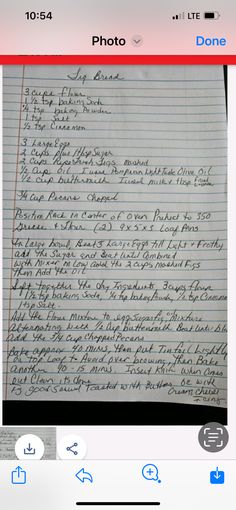 10:54
LTE
Photo
Done
Fig Bread
3 cups flour
1 1/2 tsp baking Soda
1/4 tsp baking Powder
1 tsp Salt
1/2 tsp Cinnamon
3 Large Eggs
2 Cups plus 1 tbsp Sugar
2 Cups Ripe Fresh Figs mashed
1/2 Cup Oil I use Light Olive Oil
1/2 Cup buttermilk I used milk +
3/4 Cup Pecans Chopped
Position Rack in Center of Oven Preheat to 350
Grease + Flour (2) 9x5x3 Loaf Pans
In Large bowl, Beat 3 Large Eggs till Light + Frothy
add the Sugar and Beat until Combined
with Mixer on low add the 2 cups mashed Figs
then Add the Oil
Sift together the dry Ingredients 3 cups flour
1 1/2 tsp baking Soda, 1/4 tsp baking powder, 1/2 tsp Cinnamon
1 tsp Salt.
Add the Flour Mixture to egg, Sugar, fig, Mixture
alternating with 1/2 Cup Buttermilk Beat until
add the 3/4 Cup Chopped Pecans
Bake approx 40 mins, then put Tinfoil Lightly
on top Loaf to over browning, then Bake
another 10-15 mins. Insert Knife when Comes
out Clean its done
is good Served Toasted with Butter or with
Cream cheese